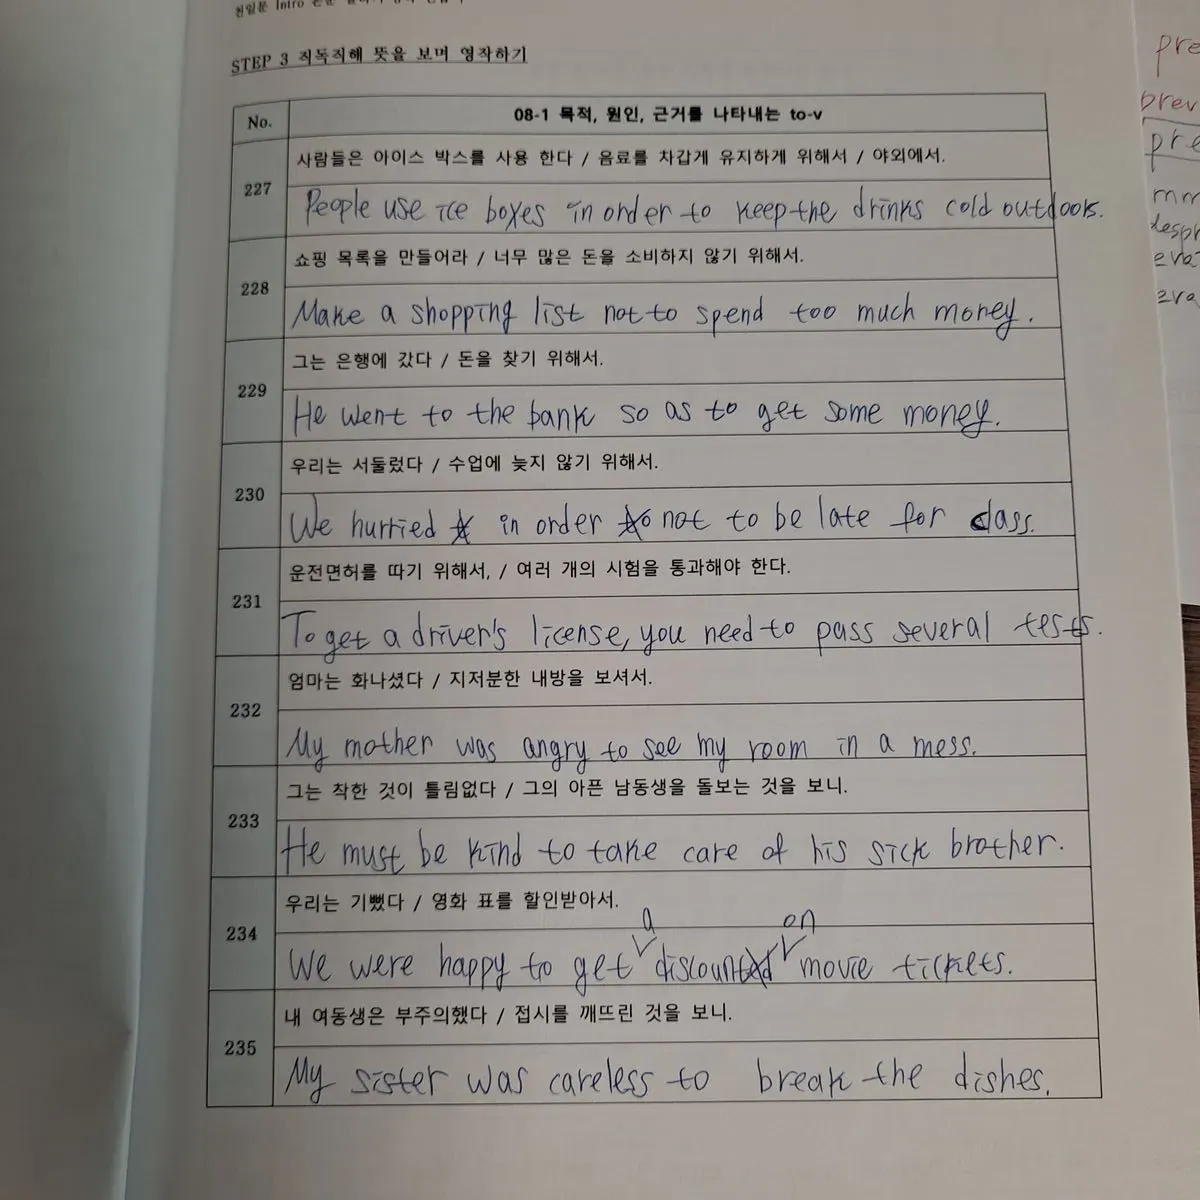 천일문 Intro
STEP 3 직독직해 뜻을 보며 영작하기
No. 08-1 목적, 원인, 근거를 나타내는 to-v
227 사람들은 아이스 박스를 사용 한다 / 음료를 차갑게 유지하게 위해서 / 야외에서.
People use ice boxes in order to keep the drinks cold outdoors.
228 쇼핑 목록을 만들어라 / 너무 많은 돈을 소비하지 않기 위해서.
Make a shopping list not to spend too much money.
229 그는 은행에 갔다 / 돈을 찾기 위해서.
He went to the bank so as to get some money.
230 우리는 서둘렀다 / 수업에 늦지 않기 위해서.
We hurried in order not to be late for class.
231 운전면허를 따기 위해서, / 여러 개의 시험을 통과해야 한다.
To get a driver's license, you need to pass several tests.
232 엄마는 화나셨다 / 지저분한 내방을 보셔서.
My mother was angry to see my room in a mess.
233 그는 착한 것이 틀림없다 / 그의 아픈 남동생을 돌보는 것을 보니.
He must be kind to take care of his sick brother.
234 우리는 기뻤다 / 영화 표를 할인받아서.
We were happy to get a discount on movie tickets.
235 내 여동생은 부주의했다 / 접시를 깨뜨린 것을 보니.
My sister was careless to break the dishes.